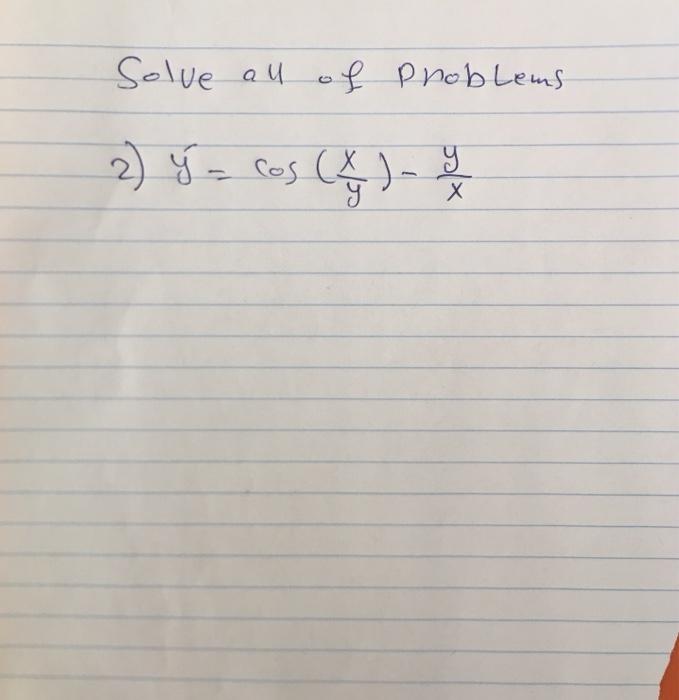 Solve all of problems
2) y' = cos (x/y) - y/x